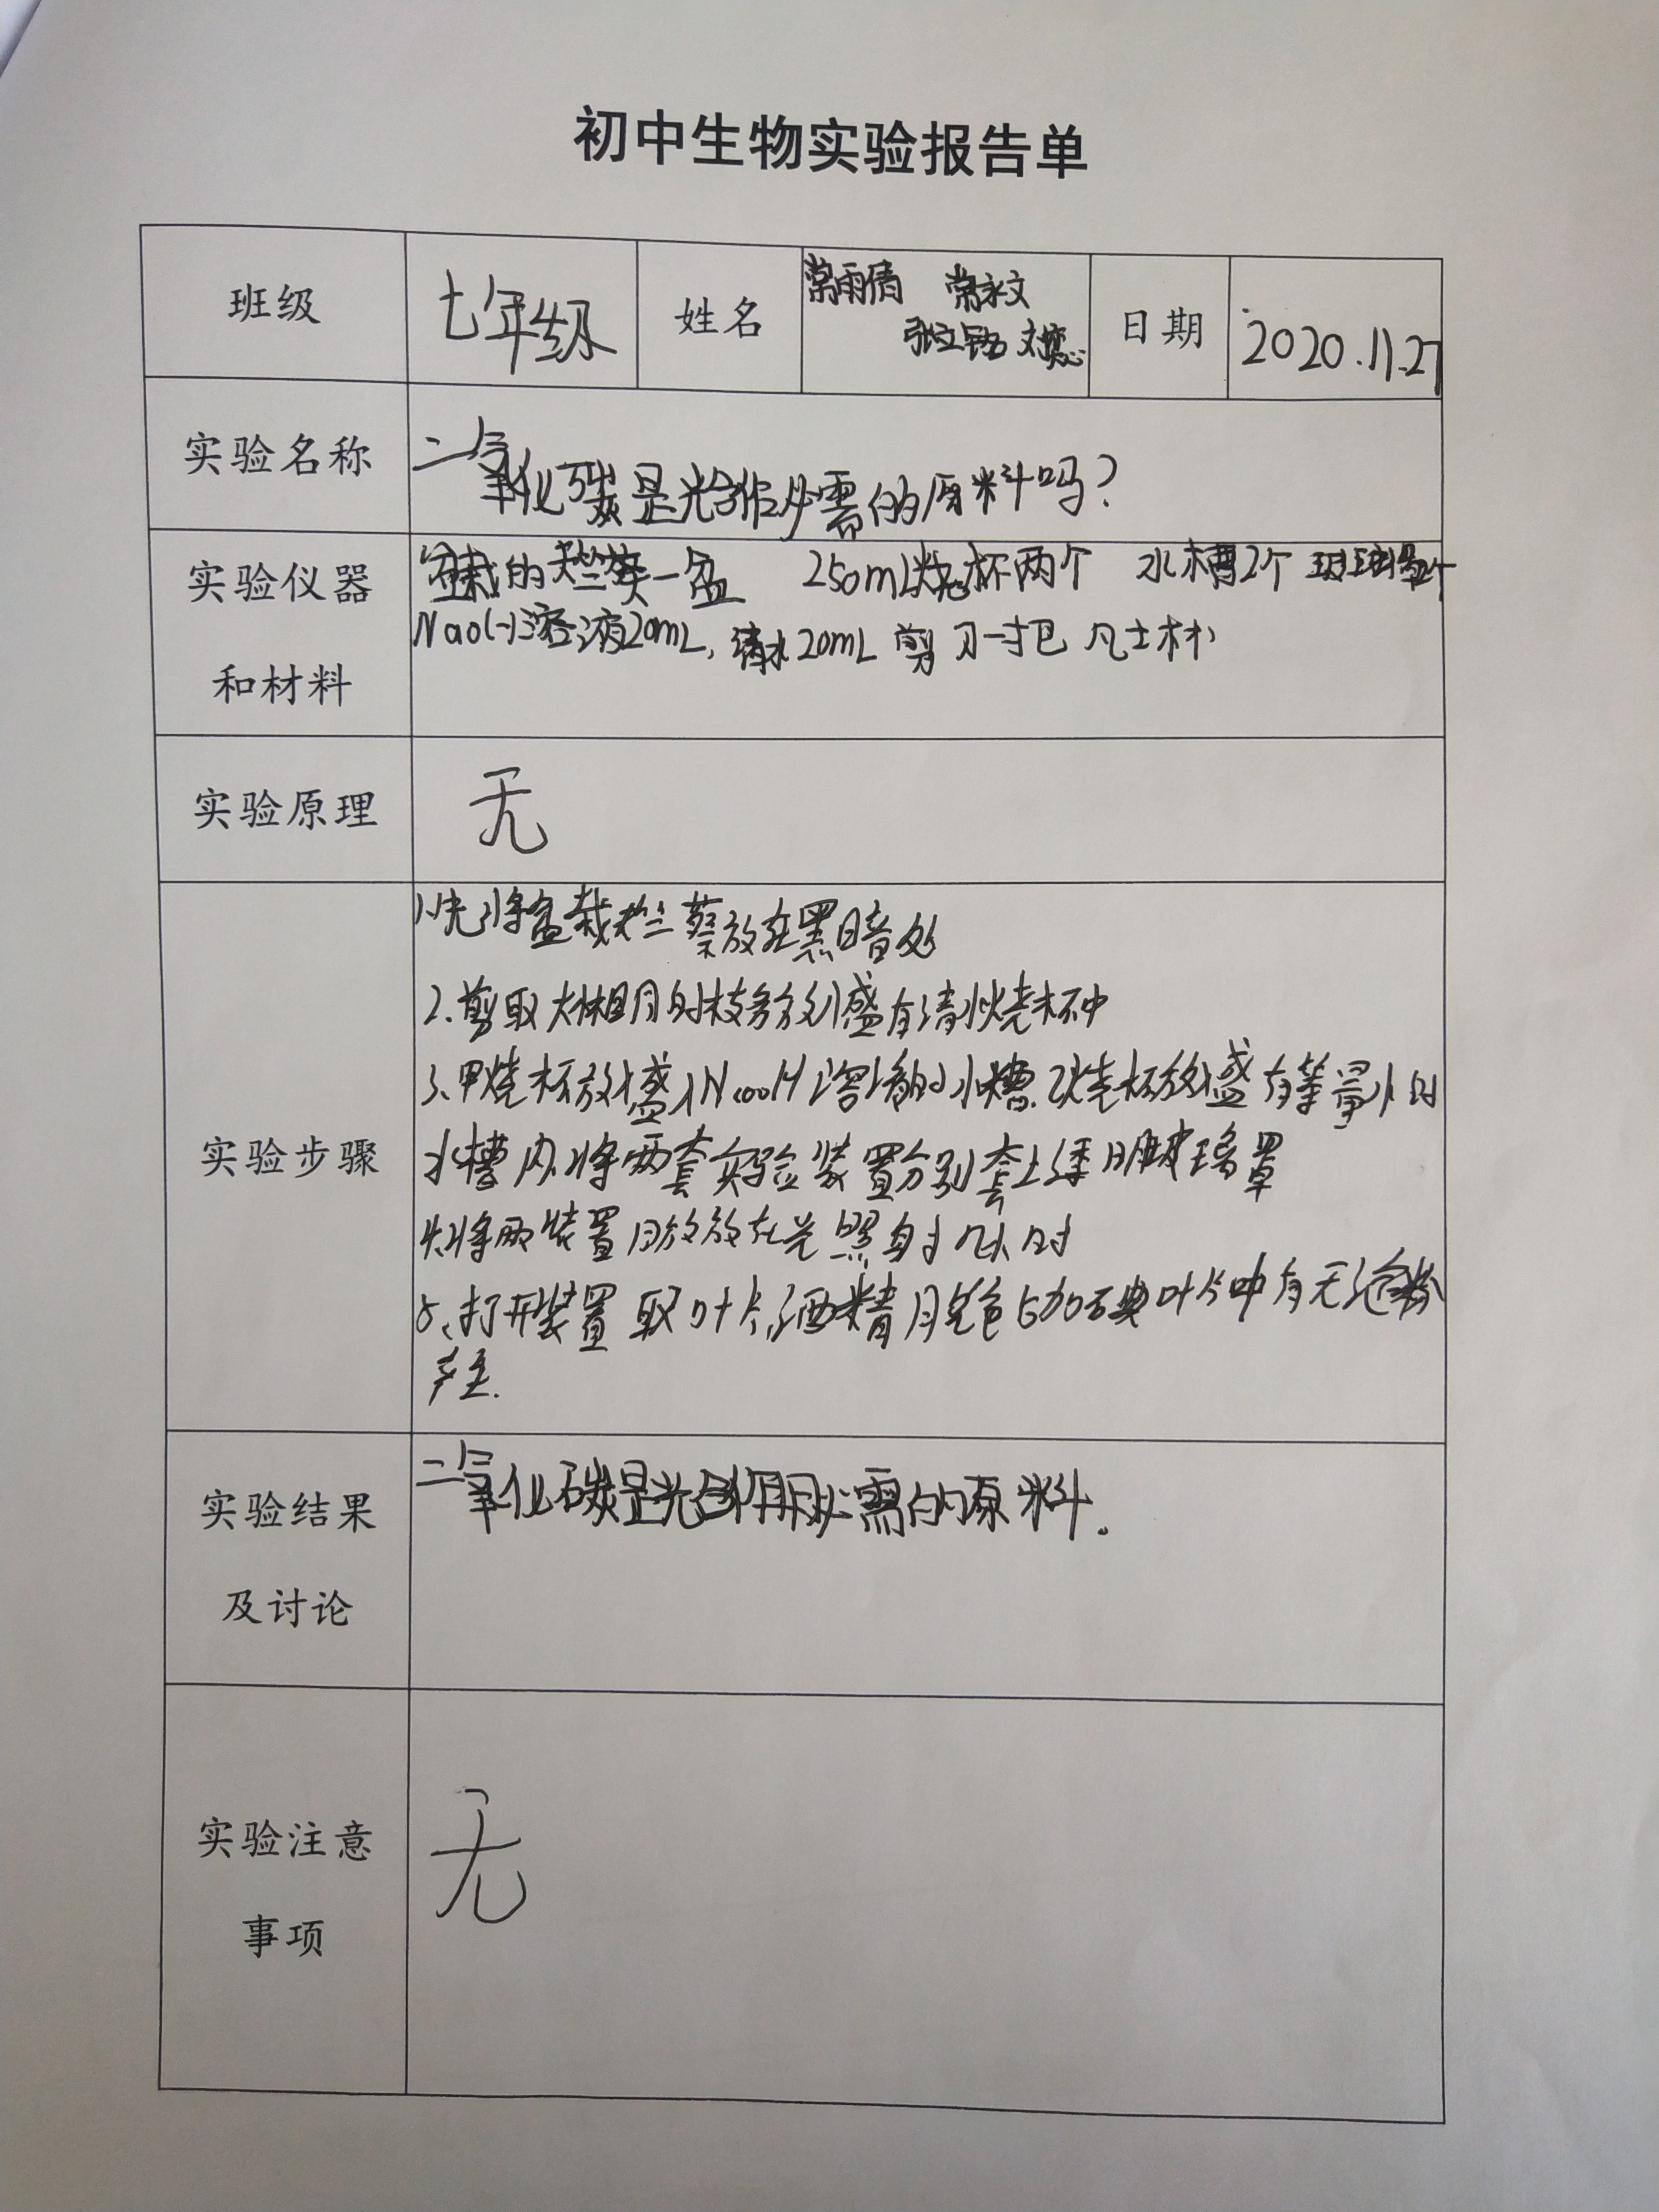 初中生物实验报告单
班级 七年级 姓名 常雨倩 常永文 日期 2020.11.27
实验名称 二氧化碳是光合作必需的原料吗?
实验仪器 盆栽的天竺葵一盆 250mL烧杯两个 水槽2个
NaOH溶液20mL,清水20mL 剪刀一把 凡士林
和材料
实验原理 无
1.先将盆栽天竺葵放在黑暗处
2.剪取大小相同的枝条放到盛有清水烧杯中
3.甲烧杯放盛 NaOH溶液的水槽.乙烧杯放盛有等量 的
实验步骤 水槽内.将两套实验装置分别套上透明玻璃罩
4.将两装置 放在光照射几小时
5.打开装置 取叶片,酒精脱色 加碘 叶片中有无淀粉
产生.
二氧化碳是光合作用必需的原料.
实验结果
及讨论
实验注意 无
事项